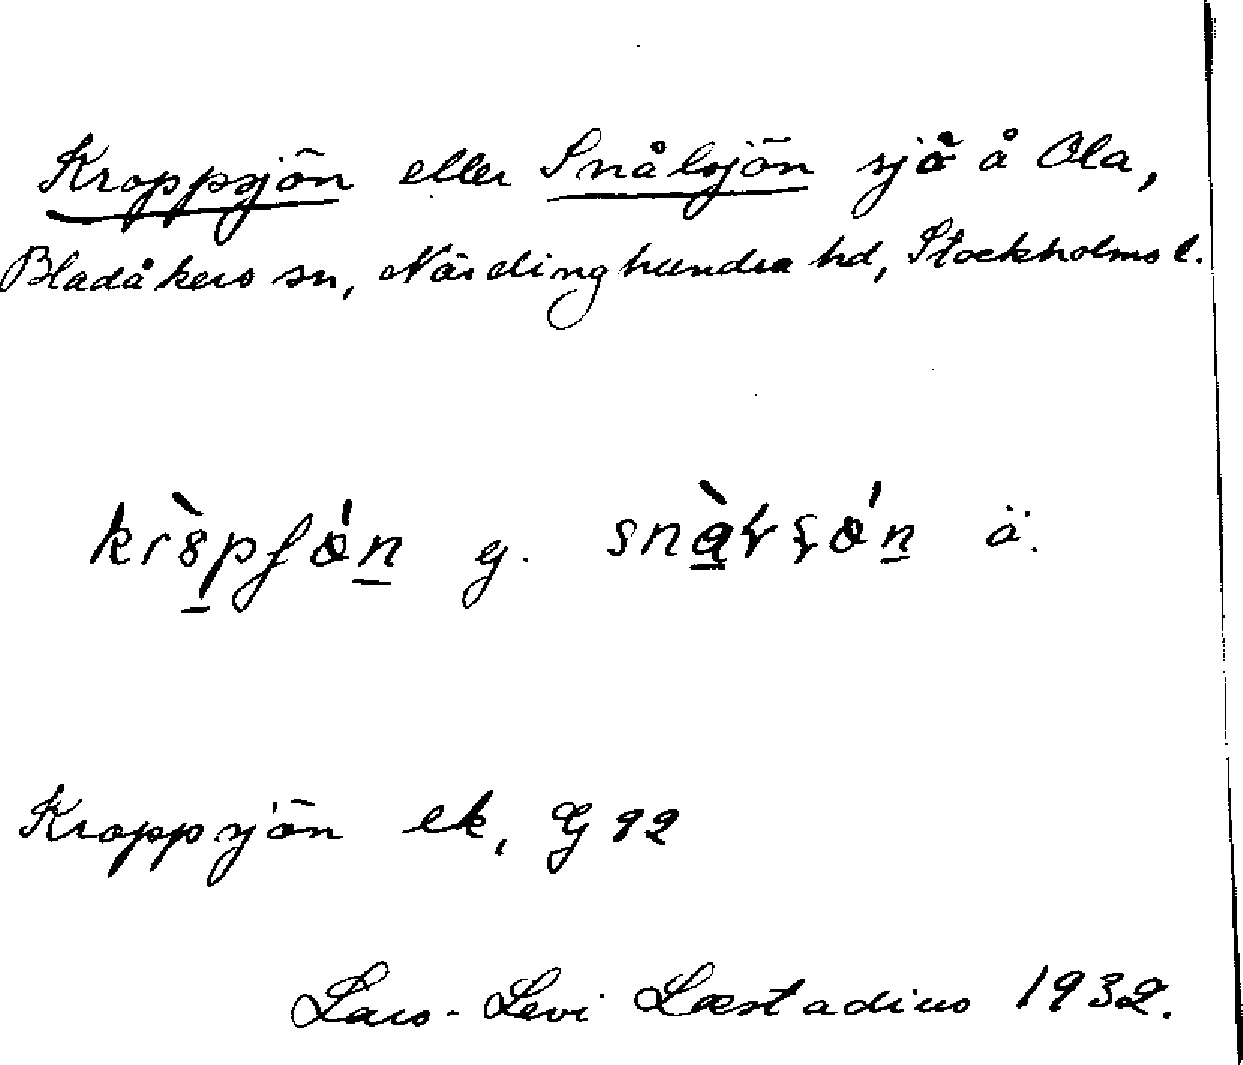 Kroppsjön eller Snålsjön sjö å Ola,
Bladåkers sn, Närdinghundra hd, Stockholms l.
g. ä.
Kroppsjön ek, G 92
Lars-Levi Læstadius 1932.